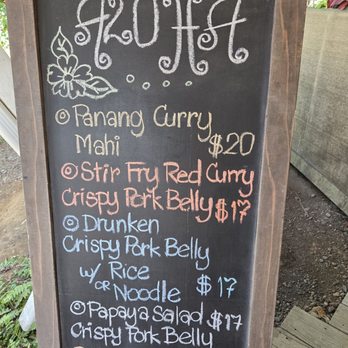 ALOHA
◎ Panang Curry
Mahi $20
◎ Stir Fry Red Curry
Crispy Pork Belly $17
◎ Drunken
Crispy Pork Belly
w/ Rice
OR Noodle $17
◎ Papaya Salad $17
Crispy Pork Belly